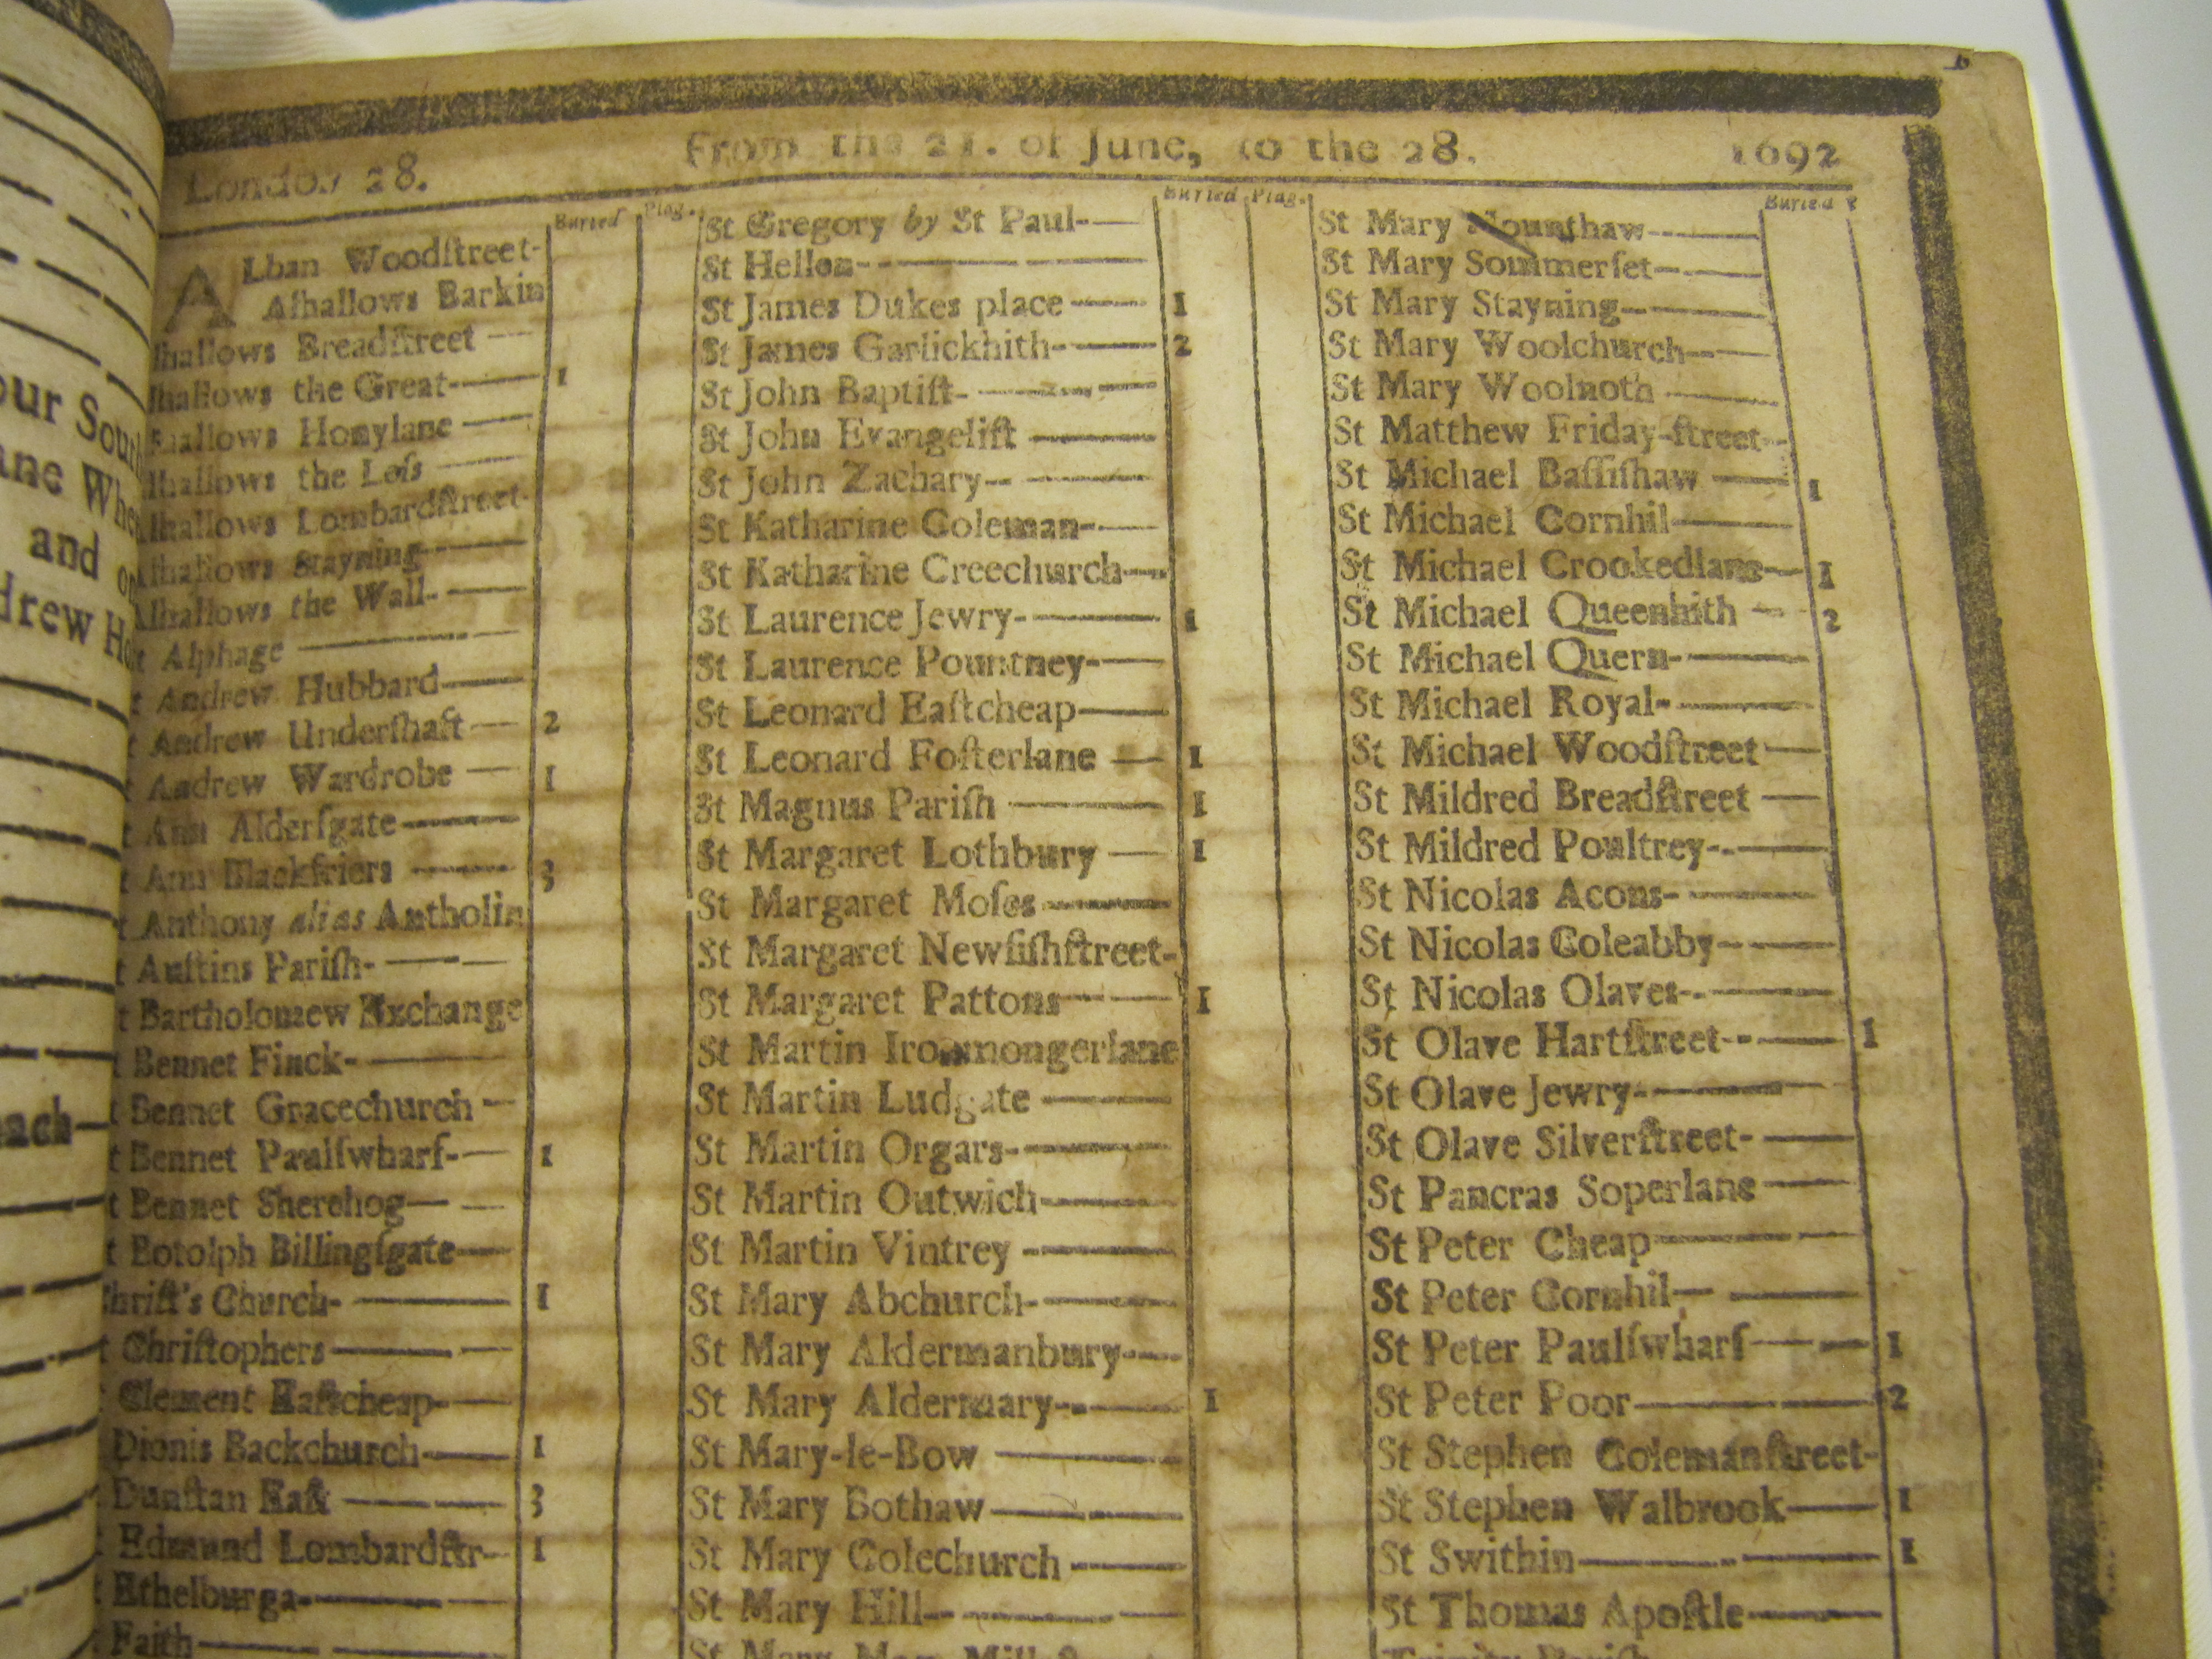 our Sou
ane Whe
and
drew Ho
ach
London 28. From the 21. of June, to the 28. 1692
Buried Plag.
ALban Woodſtreet-
Alhallows Barkin
lhallows Breadſtreet —
lhallows the Great- 1
lhallows Honylane —
lhallows the Leſs —
lhallows Lombardſtreet-
Alhallows Stayning —
Alhallows the Wall- —
t Alphage —
t Andrew Hubbard —
t Andrew Underſhaft — 2
t Andrew Wardrobe — 1
t Ann Alderſgate —
t Ann Blackfriers — 3
t Anthony alias Antholin
t Auſtins Pariſh- —
t Bartholomew Exchange
t Bennet Finck- —
t Bennet Gracechurch —
t Bennet Paulſwharf- — 1
t Bennet Sherehog —
t Botolph Billingſgate —
hriſt's Church- — 1
t Chriſtophers —
Clement Eaſtcheap- —
Dionis Backchurch — 1
Dunſtan Eaſt — 3
Edmund Lombardſtr- 1
Ethelburga- —
Faith —
Buried Plag.
St Gregory by St Paul- —
St Hellen- —
St James Dukes place — 1
St James Garlickhith- — 2
St John Baptiſt- —
St John Evangeliſt —
St John Zachary- —
St Katharine Coleman- —
St Katharine Creechurch —
St Laurence Jewry- — 1
St Laurence Pountney- —
St Leonard Eaſtcheap —
St Leonard Foſterlane — 1
St Magnus Pariſh — 1
St Margaret Lothbury — 1
St Margaret Moſes —
St Margaret Newfiſhſtreet-
St Margaret Pattons — 1
St Martin Ironmongerlane
St Martin Ludgate —
St Martin Orgars- —
St Martin Outwich —
St Martin Vintrey —
St Mary Abchurch- —
St Mary Aldermanbury —
St Mary Aldermary- — 1
St Mary-le-Bow —
St Mary Bothaw —
St Mary Colechurch —
St Mary Hill- —
St Mary
Buried
St Mary Mounthaw —
St Mary Sommerſet- —
St Mary Stayning —
St Mary Woolchurch —
St Mary Woolnoth —
St Matthew Friday-ſtreet-
St Michael Baſſiſhaw — 1
St Michael Cornhil —
St Michael Crookedlane — 1
St Michael Queenhith — 2
St Michael Quern- —
St Michael Royal- —
St Michael Woodſtreet —
St Mildred Breadſtreet —
St Mildred Poultrey- —
St Nicolas Acons- —
St Nicolas Coleabby —
St Nicolas Olaves- —
St Olave Hartſtreet- — 1
St Olave Jewry- —
St Olave Silverſtreet- —
St Pancras Soperlane —
St Peter Cheap —
St Peter Cornhil —
St Peter Paulſwharf — 1
St Peter Poor — 2
St Stephen Colemanſtreet-
St Stephen Walbrook — 1
St Swithin — 1
St Thomas Apoſtle —
Trinity Pariſh